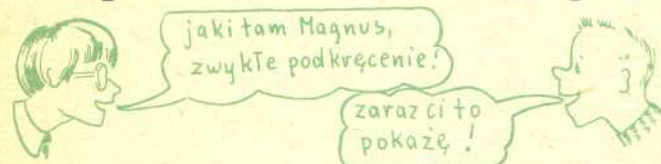 jaki tam Magnus,
zwykłe podkręcenie!
zaraz ci to
pokażę !